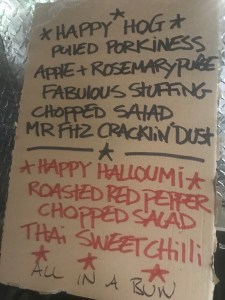 ★ HAPPY HOG ★
PULLED PORKINESS
APPLE + ROSEMARY PUREE
FABULOUS STUFFING
CHOPPED SALAD
MR FITZ CRACKLIN' DUST
★ HAPPY HALLOUMI ★
ROASTED RED PEPPER
CHOPPED SALAD
THAI SWEET CHILLI
ALL IN A BUN